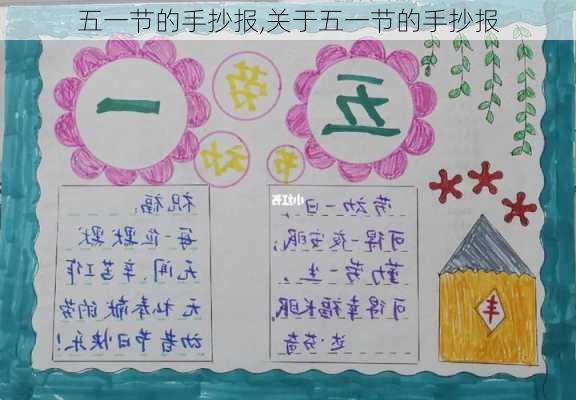 五一节的手抄报,关于五一节的手抄报
五
一
劳
动
节
小红书
劳动一日,
可得一夜安眠;
勤劳一生,
可得幸福长眠
达·芬奇
祝福:
每一位默默
无闻、辛苦工作
无私奉献的劳
动者节日快乐!
丰